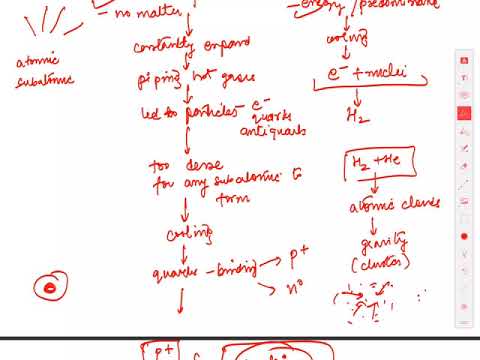 - no matter
constantly expand
piping hot gases
led to particles - e⁻
quarks
antiquarks
too dense
for any subatomic to
form
cooling
quarks - binding
p⁺
n⁰
p⁺
atomic
subatomic
- energy / predominate
cooling
e⁻ + nuclei
H₂
H₂ + He
atomic clouds
gravity
(cluster)